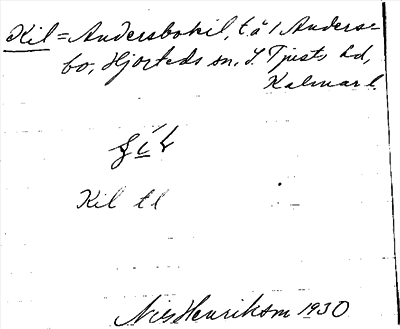 Kil = Andersbokil, t.å 1 Anders-
bo, Hjorteds sn, S. Tjusts hd,
Kalmar l.
Kil tl
Nils Henriksson 1930